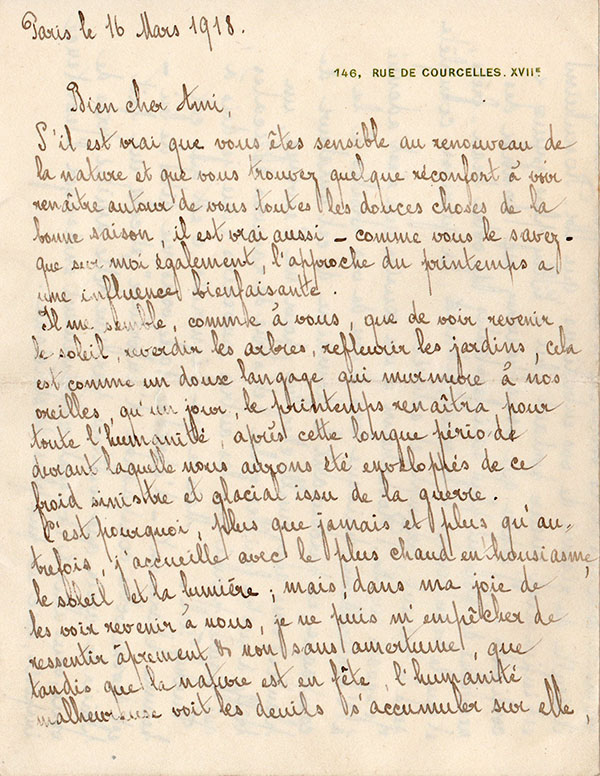 Paris le 16 Mars 1918.
146, RUE DE COURCELLES. XVIIᴱ
Bien cher Ami,
S'il est vrai que vous êtes sensible au renouveau de
la nature et que vous trouvez quelque réconfort à voir
renaître autour de vous toutes les douces choses de la
bonne saison, il est vrai aussi – comme vous le savez –
que sur moi également, l'approche du printemps a
une influence bienfaisante.
Il me semble, comme à vous, que de voir revenir
le soleil, reverdir les arbres, refleurir les jardins, cela
est comme un doux langage qui murmure à nos
oreilles, qu'un jour, le printemps renaîtra pour
toute l'humanité, après cette longue période
durant laquelle nous aurons été enveloppés de ce
froid sinistre et glacial issu de la guerre.
C'est pourquoi, plus que jamais et plus qu'au-
trefois, j'accueille avec le plus chaud enthousiasme,
le soleil et la lumière; mais, dans ma joie de
les voir revenir à nous, je ne puis m'empêcher de
ressentir âprement & non sans amertume, que
tandis que la nature est en fête, l'humanité
malheureuse voit les deuils s'accumuler sur elle,